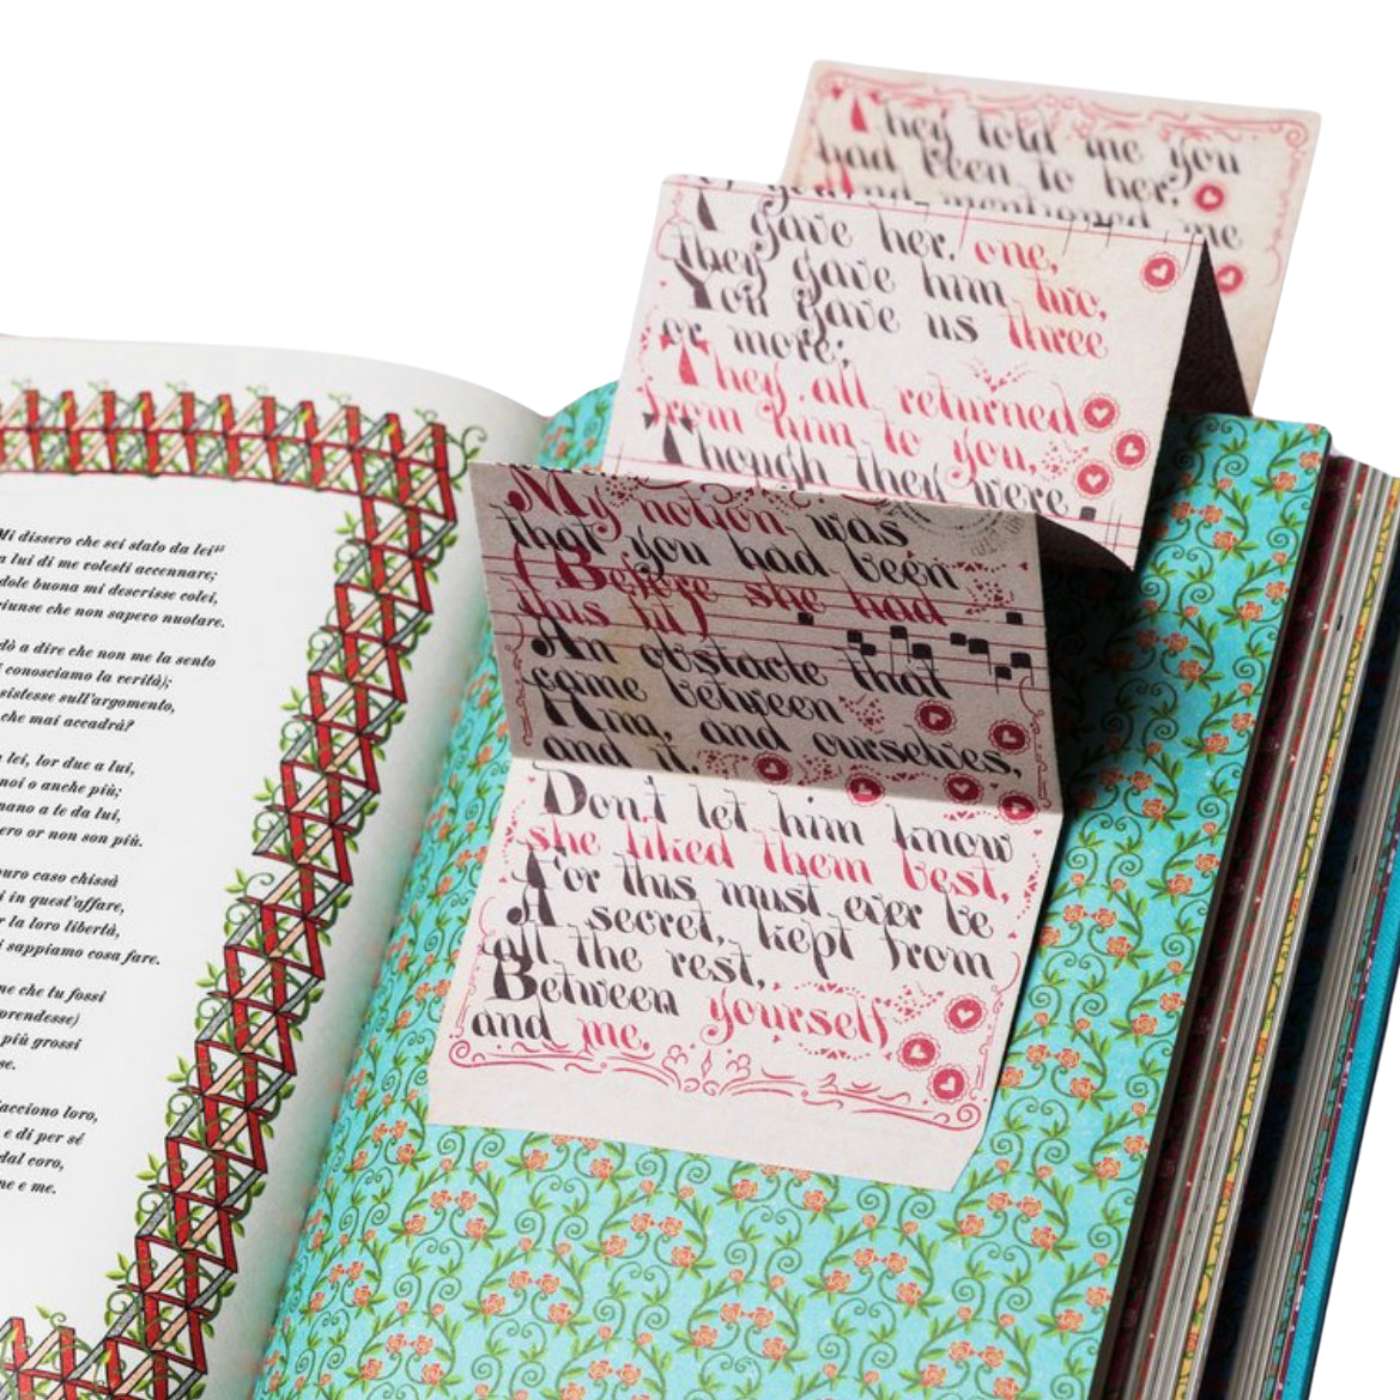 Mi dissero che sei stato da lei
a lui di me volesti accennare;
dole buona mi descrisse colei,
giunse che non sapevo nuotare.
dò a dire che non me la sento
i conosciamo la verità);
sistesse sull'argomento,
che mai accadrà?
lei, lor due a lui,
noi o anche più;
nano a te da lui,
ero or non son più.
puro caso chissà
i in quest'affare,
r la loro libertà,
i sappiamo cosa fare.
ne che tu fossi
prendesse)
più grossi
se.
acciono loro,
e di per sé
dal coro,
ne e me.
They told me you
had been to her,
And mentioned me
I gave her one,
they gave him two,
You gave us three
or more;
They all returned
from him to you,
Though they were
My notion was
that you had been
(Before she had
this fit)
An obstacle that
came between
Him, and ourselves,
and it.
Don't let him know
she liked them best,
For this must ever be
A secret, kept from
all the rest,
Between yourself
and me.